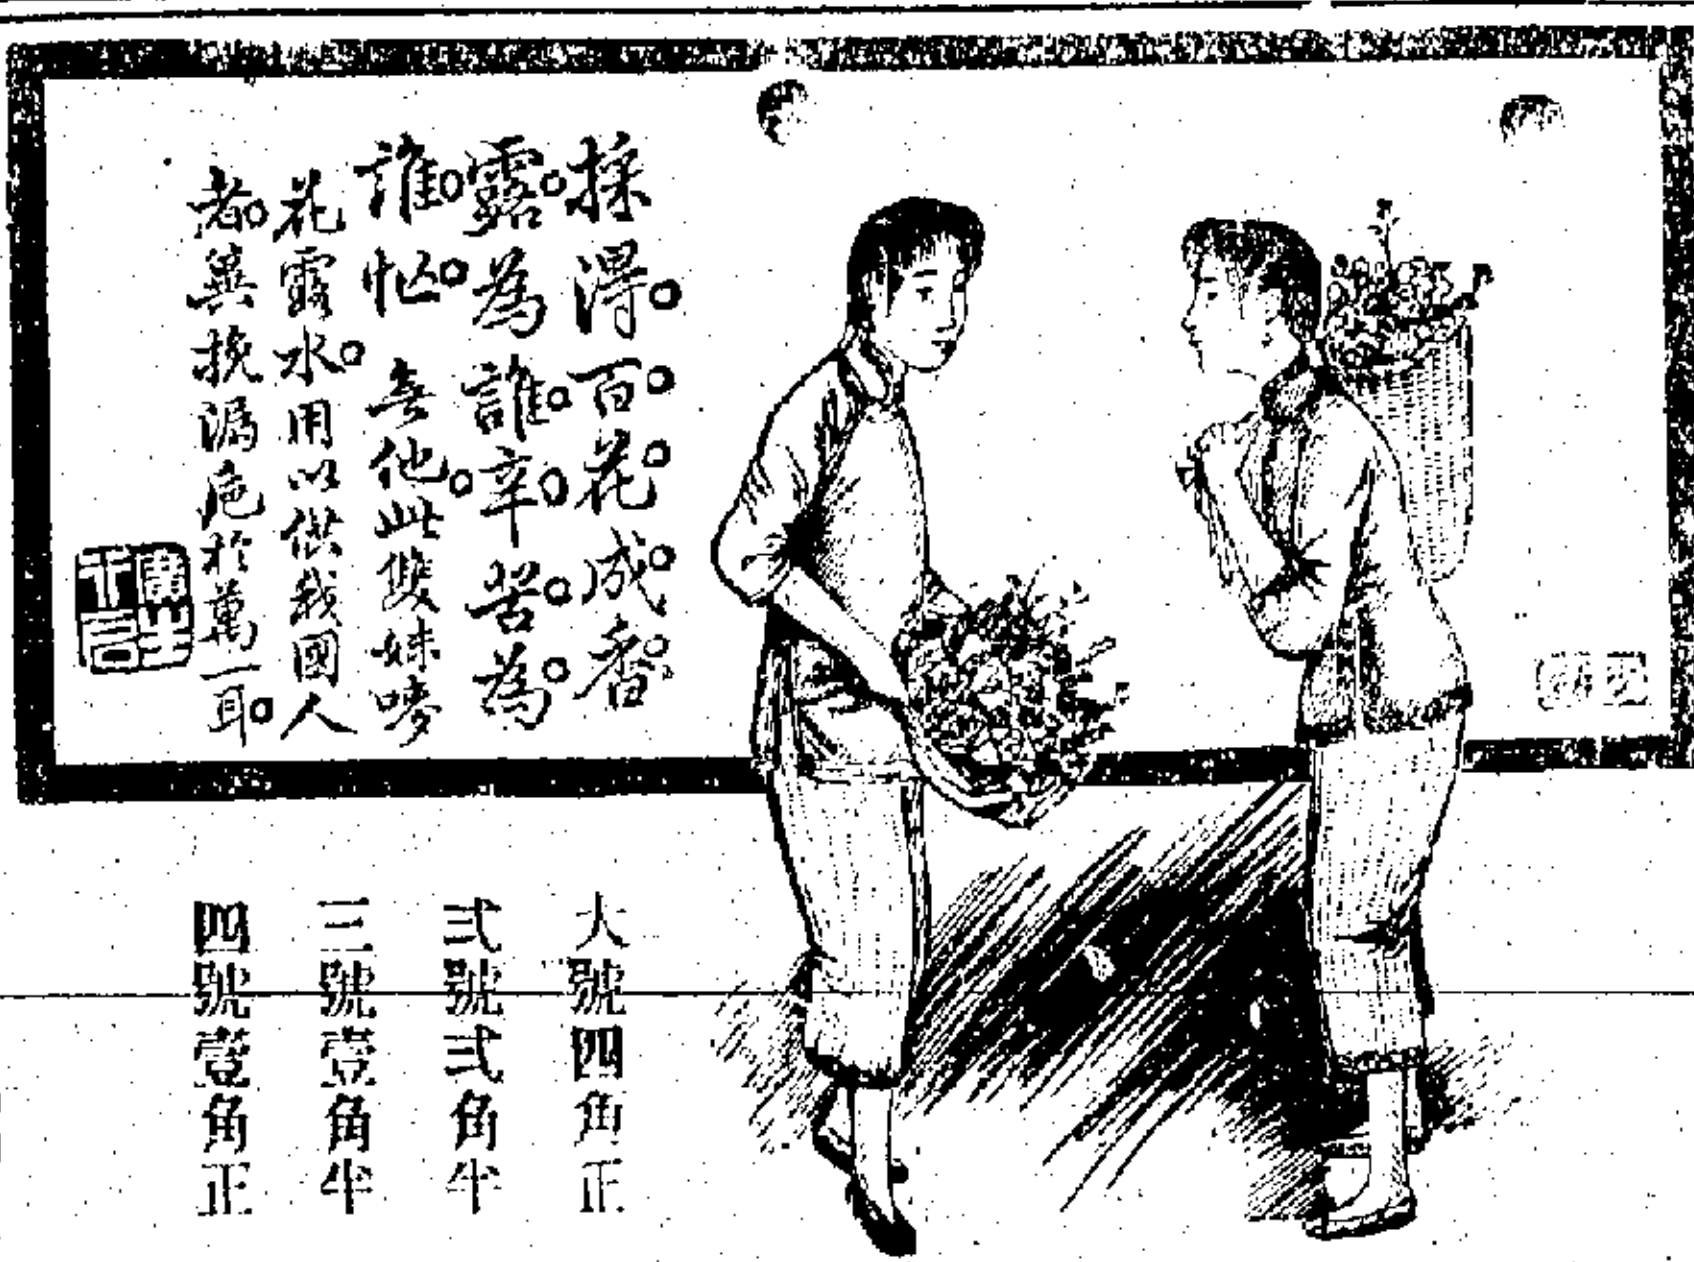 採淂百花成香
露為誰辛苦為
誰忙 無他。此雙妹嘜
花露水。用以供我國人
者。冀挽漏巵於萬一耳。
廣生
大號四角正
弍號弍角半
三號壹角半
四號壹角正